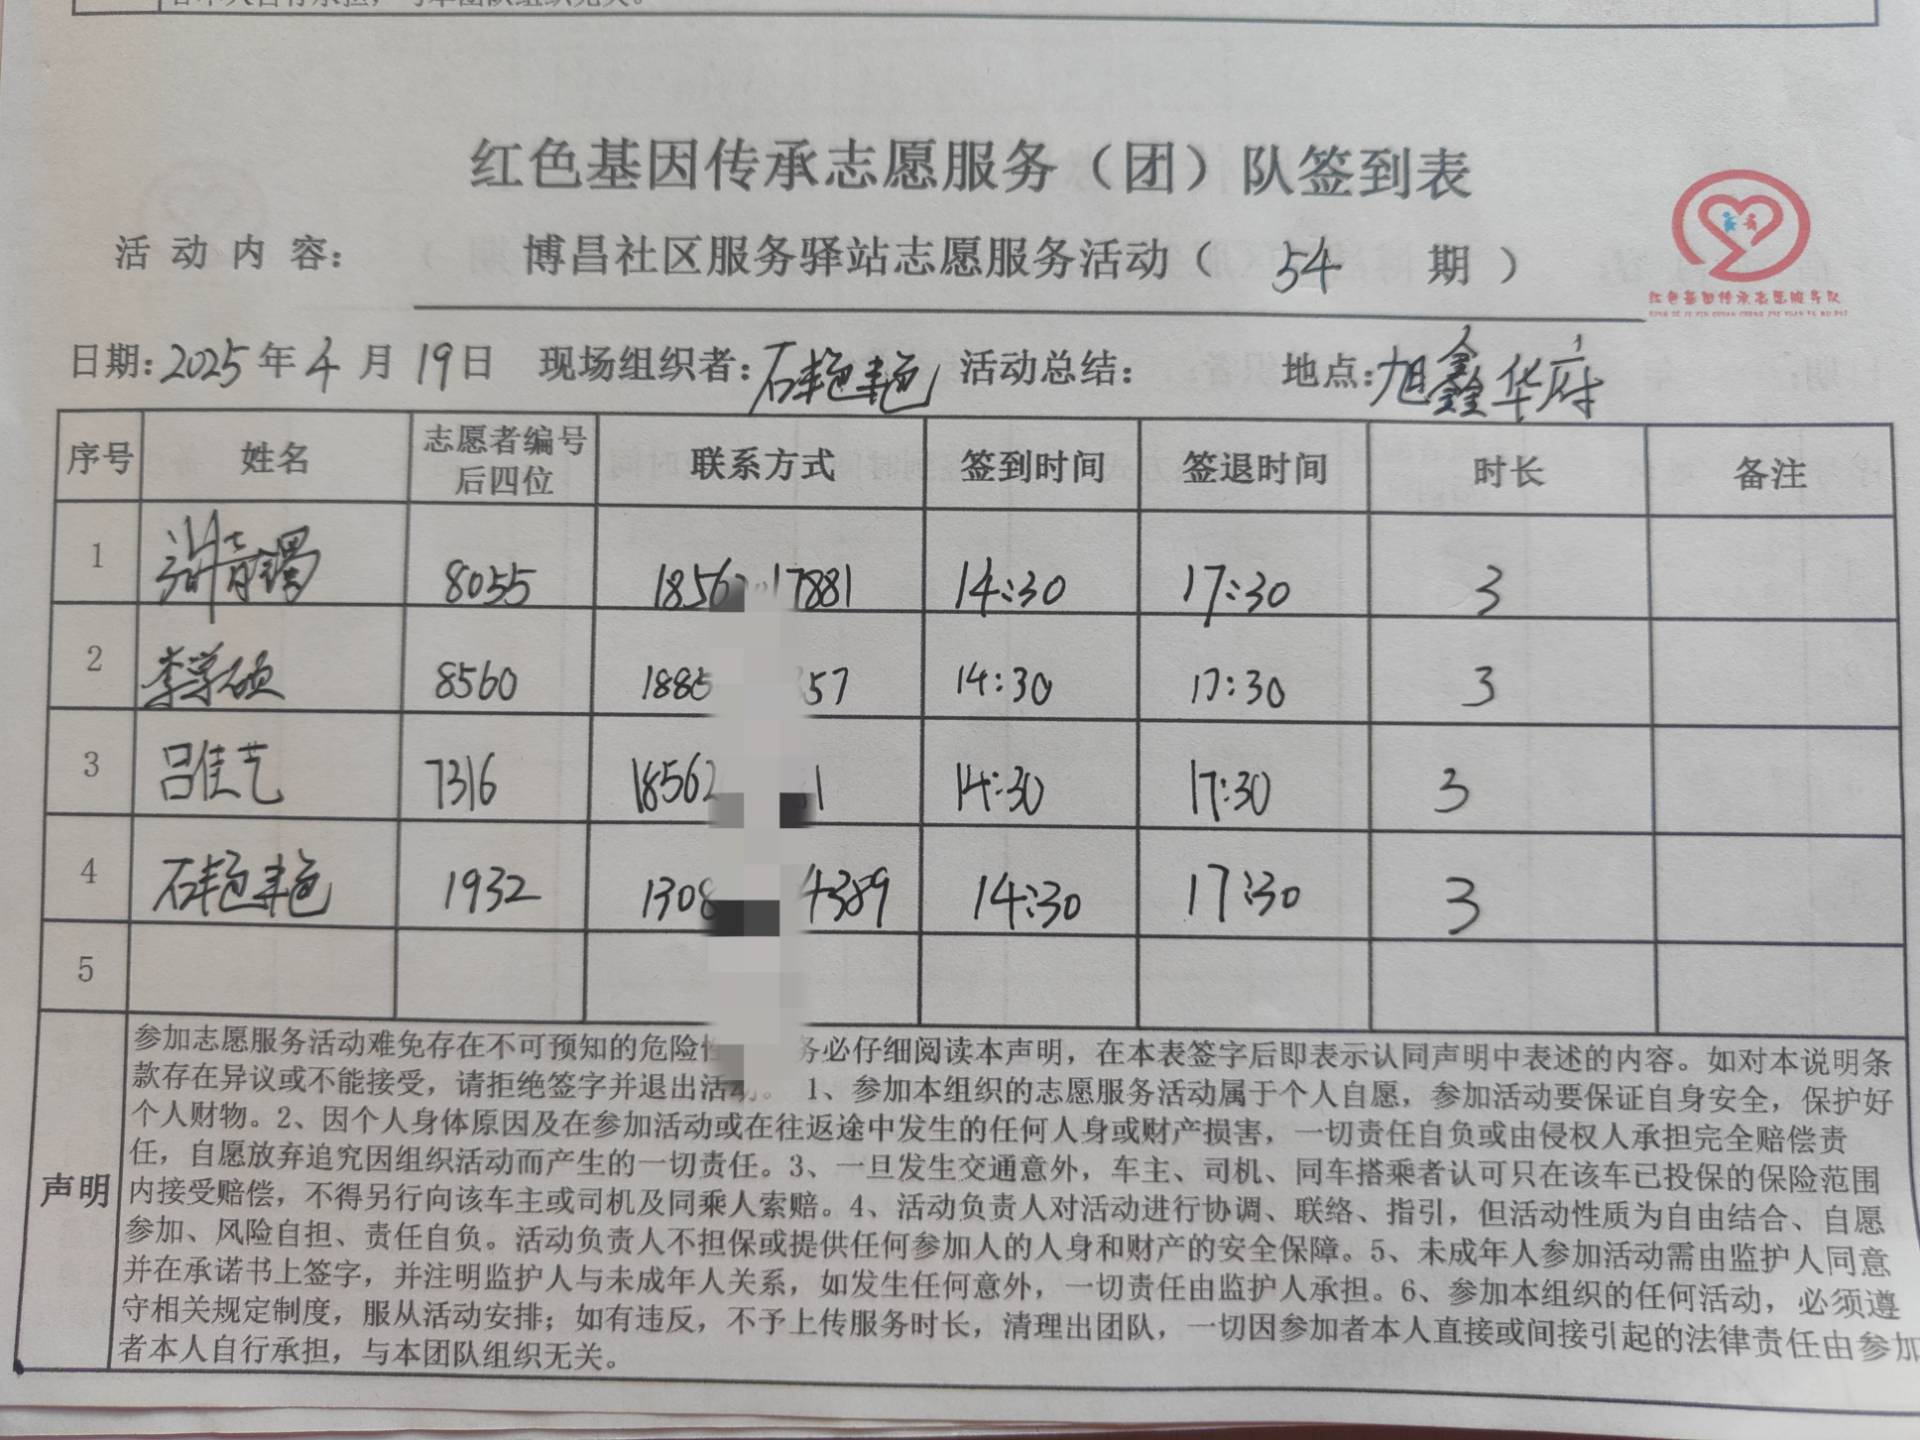 者本人自行承担，与本团队组织无关。
红色基因传承志愿服务（团）队签到表
活动内容： 博昌社区服务驿站志愿服务活动（ 54 期）
红色基因传承志愿服务队
日期：2025年4月19日 现场组织者：石艳艳 活动总结： 地点：旭鑫华府
序号 姓名 志愿者编号后四位 联系方式 签到时间 签退时间 时长 备注
1 8055 1856 17881 14:30 17:30 3
2 李学硕 8560 1885 57 14:30 17:30 3
3 吕佳艺 7316 18562 1 14:30 17:30 3
4 石艳艳 1932 1308 4389 14:30 17:30 3
5
声明
参加志愿服务活动难免存在不可预知的危险性 务必仔细阅读本声明，在本表签字后即表示认同声明中表述的内容。如对本说明条
款存在异议或不能接受，请拒绝签字并退出活动。 1、参加本组织的志愿服务活动属于个人自愿，参加活动要保证自身安全，保护好
个人财物。2、因个人身体原因及在参加活动或在往返途中发生的任何人身或财产损害，一切责任自负或由侵权人承担完全赔偿责
任，自愿放弃追究因组织活动而产生的一切责任。3、一旦发生交通意外，车主、司机、同车搭乘者认可只在该车已投保的保险范围
内接受赔偿，不得另行向该车主或司机及同乘人索赔。4、活动负责人对活动进行协调、联络、指引，但活动性质为自由结合、自愿
参加、风险自担、责任自负。活动负责人不担保或提供任何参加人的人身和财产的安全保障。5、未成年人参加活动需由监护人同意
并在承诺书上签字，并注明监护人与未成年人关系，如发生任何意外，一切责任由监护人承担。6、参加本组织的任何活动，必须遵
守相关规定制度，服从活动安排；如有违反，不予上传服务时长，清理出团队，一切因参加者本人直接或间接引起的法律责任由参加
者本人自行承担，与本团队组织无关。